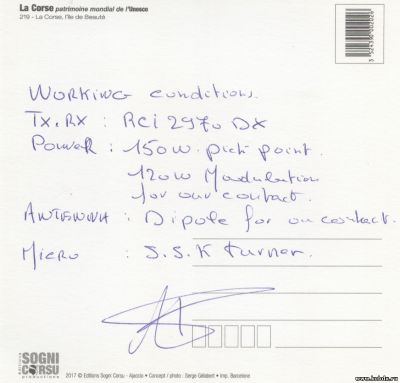 La Corse patrimoine mondial de l'Unesco
219 - La Corse, l'île de Beauté
WORKING conditions.
TX.RX : RCi 2970 DX
POWER : 150W. pick point.
120W Modulation
for our contact.
ANTENNA : Dipole for ou contact.
MICRO : S.S.K turner.
EDITIONS
SOGNI
CORSU
productions
2017 © Editions Sogni Corsu - Ajaccio • Concept / photo : Serge Gélabert • Imp. Barcelone